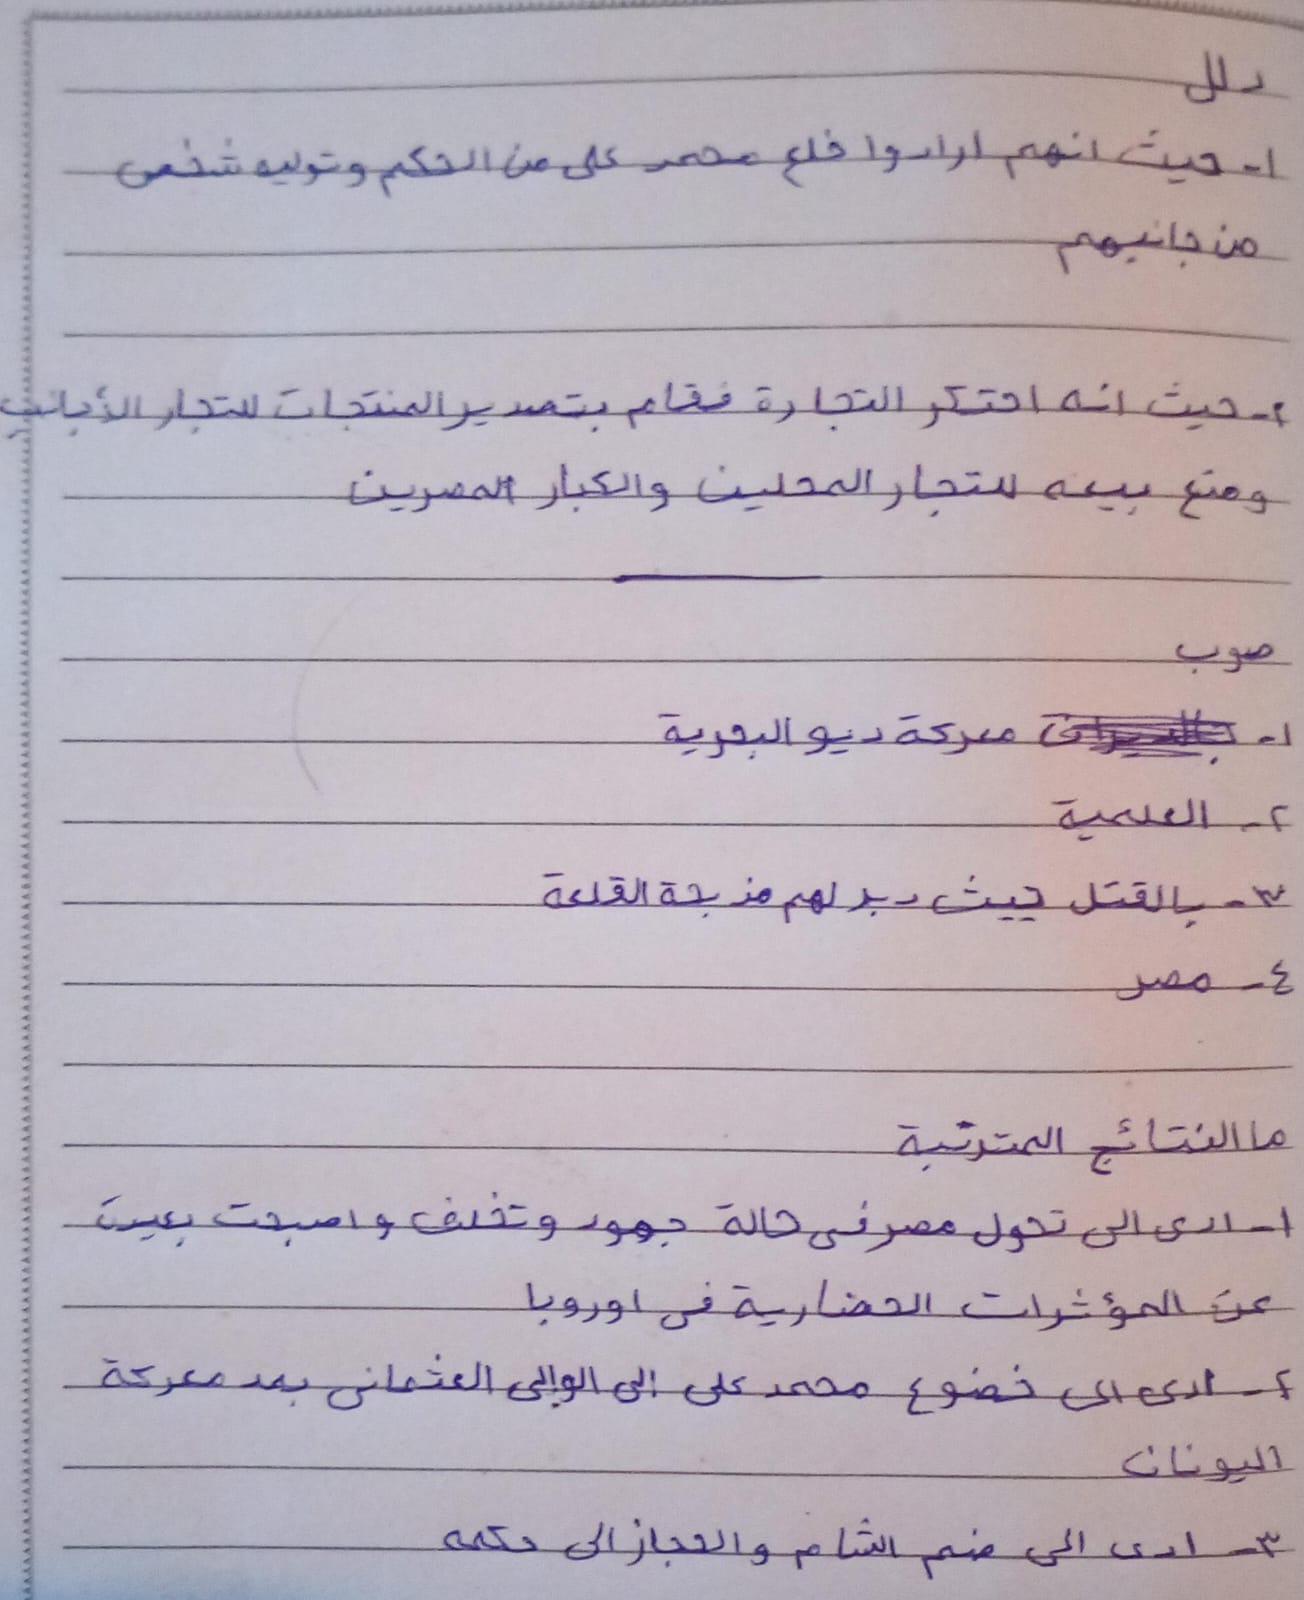 دلل
١- حيث انهم ارادوا خلع محمد على من الحكم وتوليه شخص
من جانبهم
٢- حيث انه احتكر التجارة فقام بتصدير المنتجات للتجار الأجانب
ومنع بيعه للتجار المحلين والكبار المصرين
صوب
١- معركة ديو البحرية
٢- العلمية
٣- بالقتل حيث دبر لهم مذبحة القلعة
٤- مصر
ما النتائج المترتبة
١- ادى الى تحول مصر فى حالة جمود وتخلف واصبحت بعيدة
عن المؤثرات الحضارية فى اوروبا
٢- ادى الى خضوع محمد على الى الوالى العثمانى بعد معركة
اليونان
٣- ادى الى ضم الشام والحجاز الى حكمه